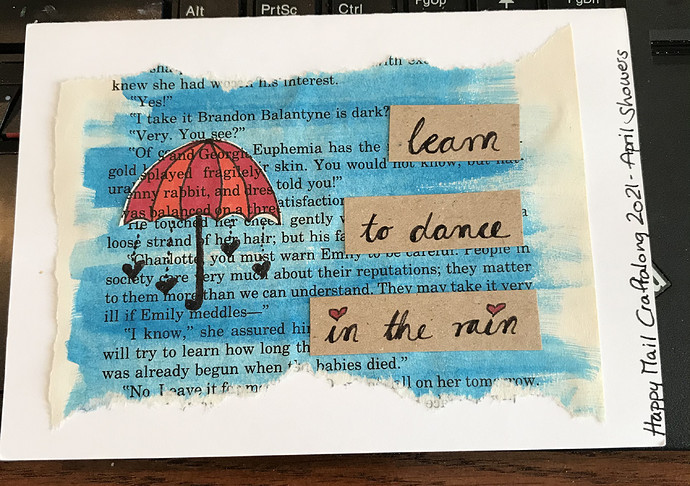 Alt PrtSc Ctrl FgUp FgDn
with
knew she had his interest.
"Yes!"
"I take it Brandon Balantyne is dark?
"Very. You see?"
"Of and Georgi Euphemia has the
gold splayed fragilely r skin. You would not know, but
ura nny rabbit, and dres told you!"
was balanced on a thre atisfaction
He touched her cheek gently
loose strand of her hair; but his fa
"Charlotte, you must warn Emily to be careful. People in
society care very much about their reputations; they matter
to them more than we can understand. They may take it very
ill if Emily meddles—"
"I know," she assured him
will try to learn how long th
was already begun when the babies died."
"No. Leave it for me all on her tomorrow.
learn
to dance
in the rain
Happy Mail Craftalong 2021 - April Showers